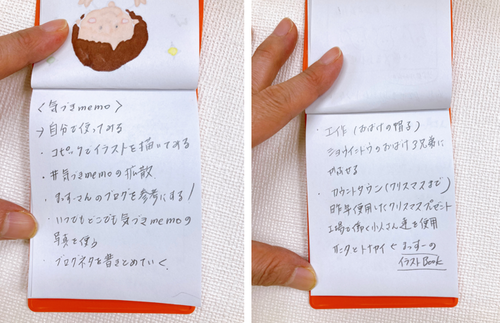 <気づきmemo>
→自分で使ってみる
・コピックでイラストを描いてみる
・#気づきmemoの拡散
・むっすーさんのブログを参考にする!
・いつでもどこでも気づきmemoの
写真を使う
・ブログネタを書きとめていく
・工作(おばけの帽子)
ショウイントウのおばけ3兄弟に
かぶせる
・カウントダウン(クリスマスまで)
昨年使用したクリスマスプレゼント
工場で働く小人さん達を使用
イラストBook